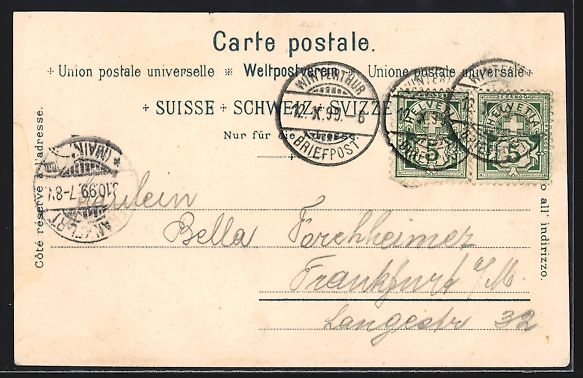 Carte postale.
Union postale universelle * Weltpostverein Unione postale universale
SUISSE + SCHWEIZ + SVIZZE
Nur für die
WINTERTHUR
12.X.99.-6
BRIEFPOST
HELVETIA
5
HELVETIA
5
Côté réservé à l'adresse.
(MAIN)
3.10.99.7-8
Fräulein
Bella Forchheimer
Frankfurt a/M.
Langestr 32
all' indirizzo.